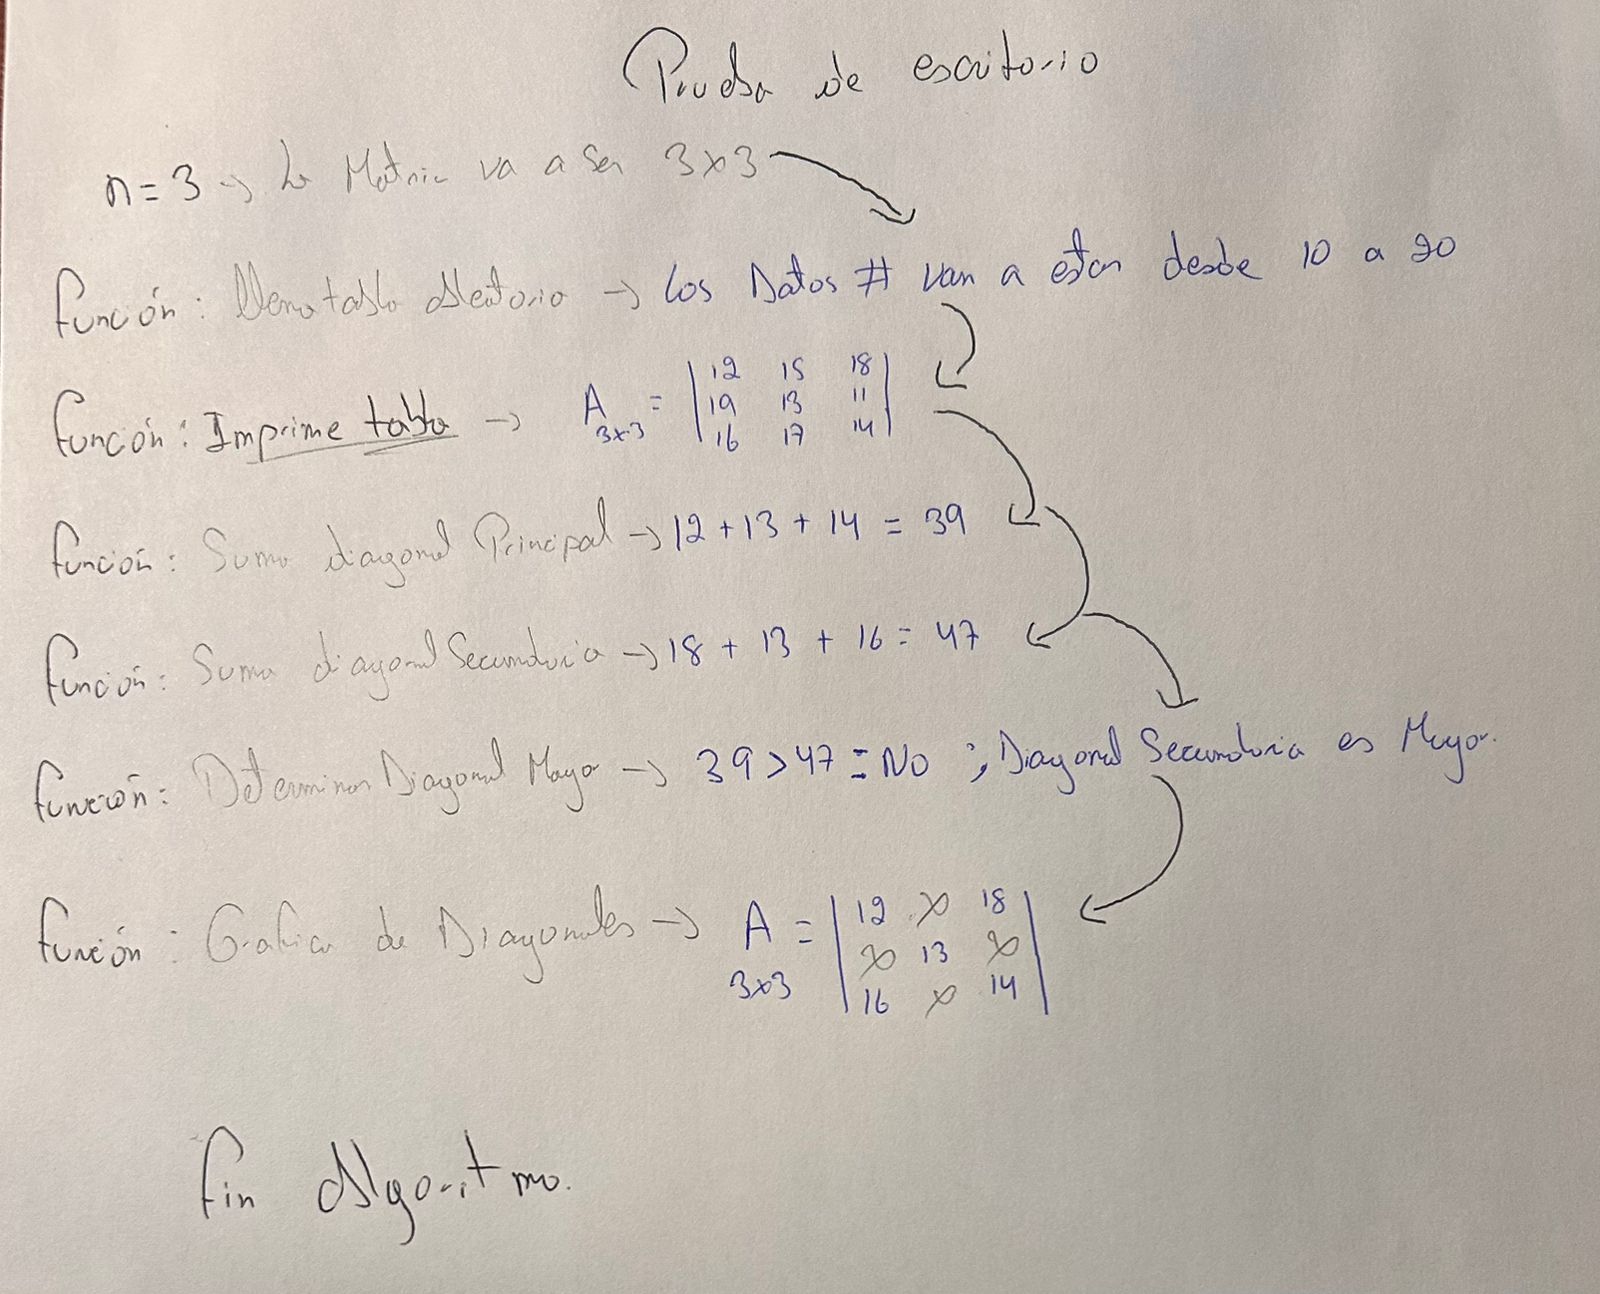 Prueba de escritorio
n = 3 → La Matriz va a ser 3x3
función: llena tabla Aleatorio → Los Datos # van a estar desde 10 a 20
función: Imprime tabla → A 3x3 = | 12 15 18 |
| 19 13 11 |
| 16 17 14 |
función: Suma diagonal Principal → 12 + 13 + 14 = 39
función: Suma diagonal Secundaria → 18 + 13 + 16 = 47
función: Determinar Diagonal Mayor → 39 > 47 = No ; Diagonal Secundaria es Mayor.
función: Grafica de Diagonales → A 3x3 = | 12 x 18 |
| x 13 x |
| 16 x 14 |
Fin Algoritmo.